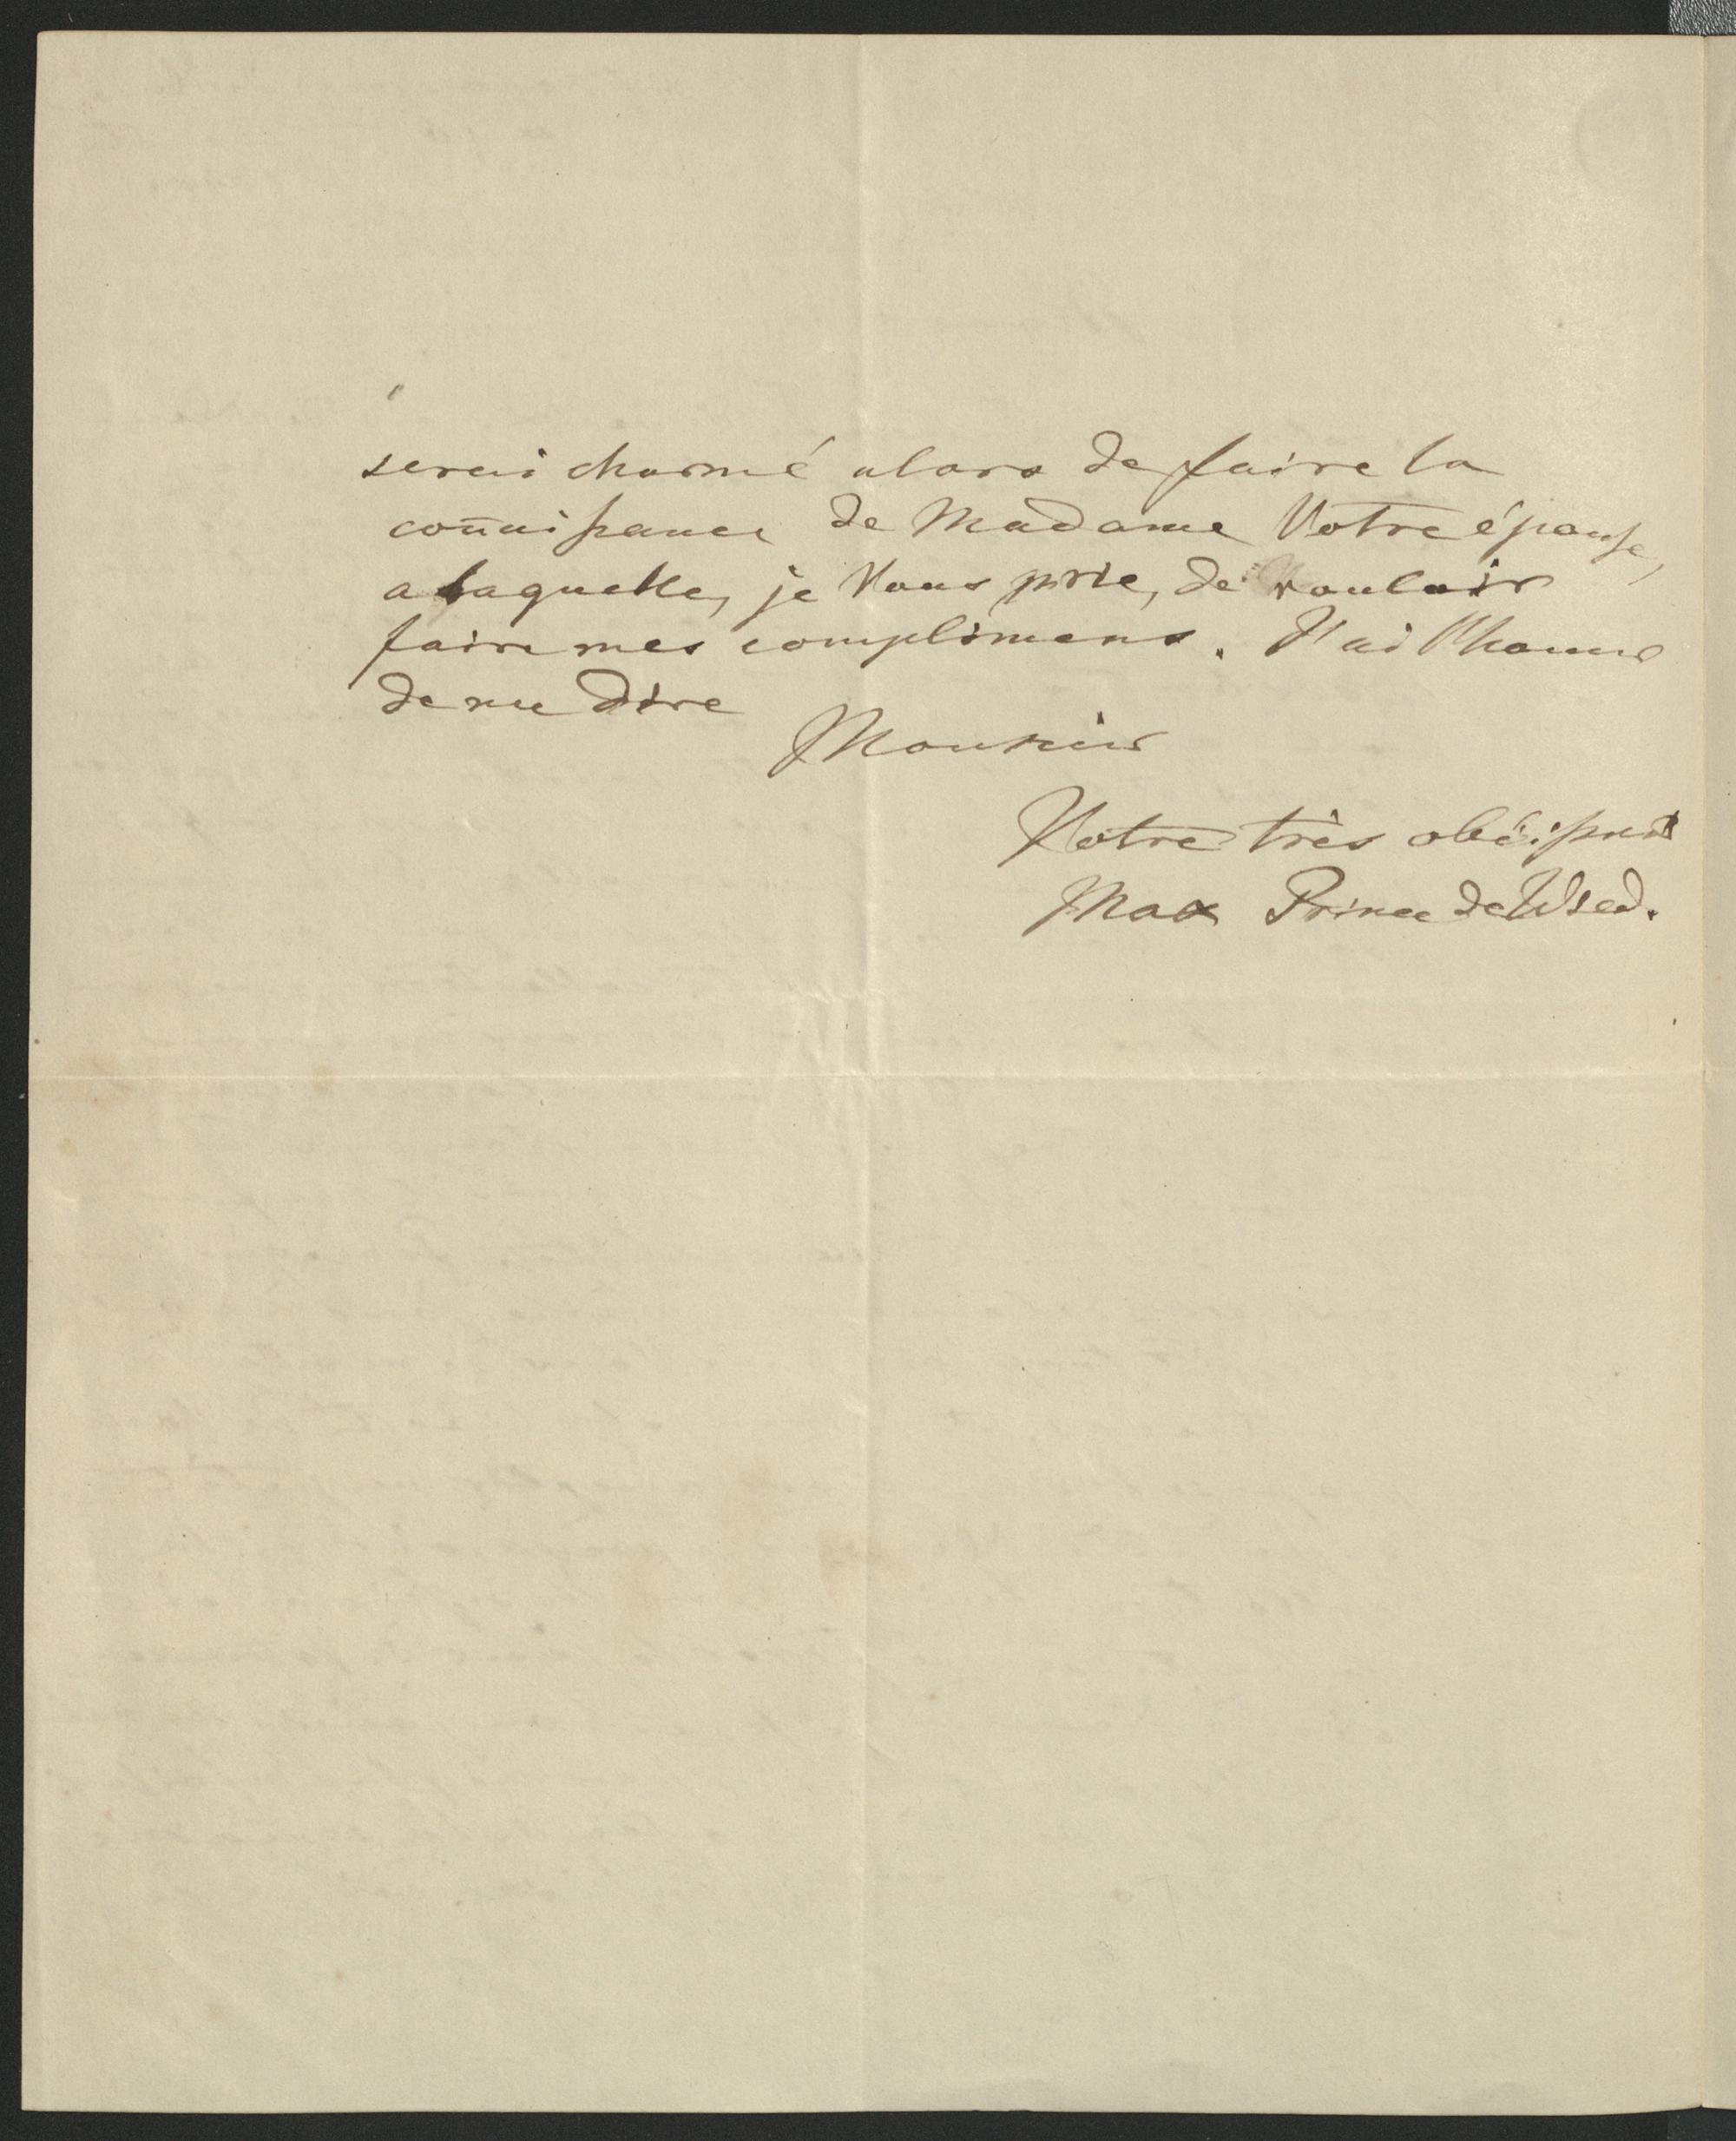 serai charmé alors de faire la
coñaissance de Madame Votre épouse,
a laquelle, je Vous prie, de vouloir
faire mes complimens. J'ai l'honneur
de me dire
Monsieur
Votre très obéissant
Max Prince de Wied.